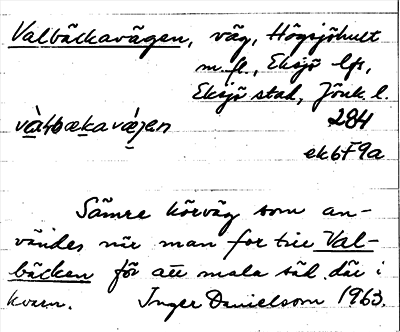 Valbäckavägen, väg, Högsjöhult
m. fl., Eksjö lfs,
Eksjö stad, Jönk. l.
284
ek6F9a
Sämre körväg som an-
vändes när man for till Val-
bäcken för att mala säd där i
kvarn. Inger Danielsson 1963.